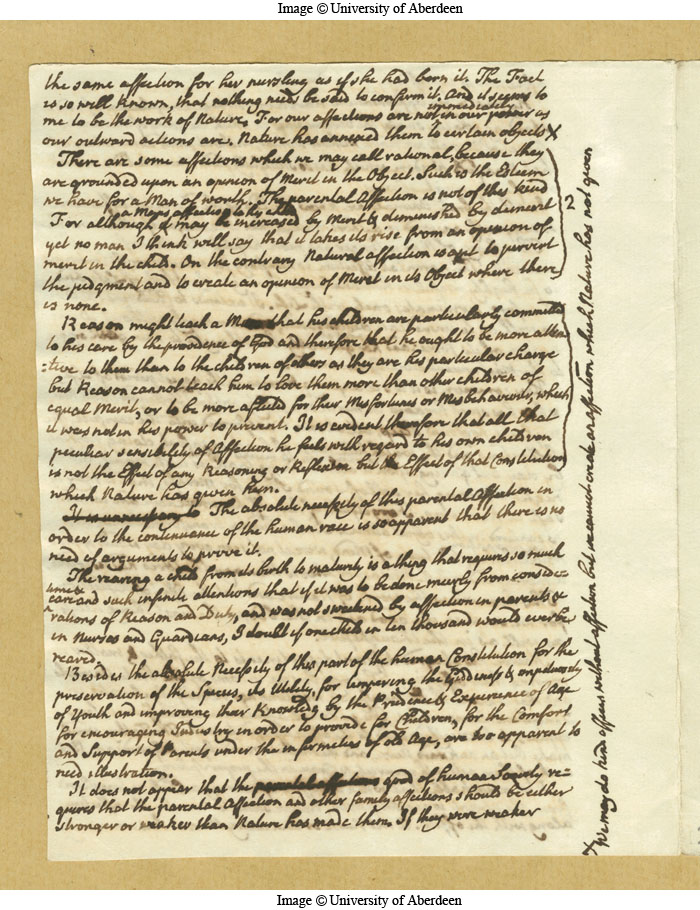 Image © University of Aberdeen
the same affection for her nursling as if she had born it. The Fact
is so well known, that nothing needs be said to confirm it. And it seems to
immediately
me to be the work of Nature. For our affections are not in our power as
our outward actions are. Nature has annexed them to certain objects X
There are some affections which we may call rational, because they
are grounded upon an opinion of Merit in the Object. Such is the Esteem
we have for a Man of worth. The parental Affection is not of this kind
a Mans affection to his child
For although it may be increased by Merit & diminished by demerit
yet no man I think will say that it takes its rise from an opinion of
merit in the child. On the contrary Natural affection is apt to pervert
the judgment and to create an opinion of Merit in its Object where there
is none.
2
Reason might teach a Man that his children are particularly committed
to his care by the providence of God and therefore that he ought to be more atten
:tive to them than to the children of others as they are his particular charge
but Reason cannot teach him to love them more than other children of
equal Merit, or to be more afflicted for their Misfortunes or Misbehaviour, which
it was not in his power to prevent. It is evident therefore that all that
peculiar sensibility of Affection he feels with regard to his own children
is not the Effect of any Reasoning or Reflexion but the Effect of that Constitution
which Nature has given him.
It is unnecessary to The absolute necessity of this parental Affection in
order to the continuance of the human race is so apparent that there is no
need of arguments to prove it.
The rearing a child from its birth to maturity is a thing that requires so much
time &
care and such infinite attentions that if it was to be done meerly from conside-
rations of Reason and Duty, and was not sweetened by affection in parents &
in Nurses and Guardians, I doubt if one child in ten thousand would ever be
reared.
Besides the absolute Necessity of this part of the human Constitution for the
preservation of the Species, its Utility, for tempering the Giddiness & impetuosity
of Youth and improving their Knowledg by the Prudence & Experience of Age
for encouraging Industry in order to provide for Children, for the Comfort
and Support of Parents under the infirmities of old Age, are too apparent to
need illustration.
It does not appear that the parental affections good of human Society re=
quires that the parental Affection and other family affections should be either
stronger or weaker than Nature has made them. If they were weaker
X We may do kind offices without affection but we cannot create an affection which Nature has not given
Image © University of Aberdeen